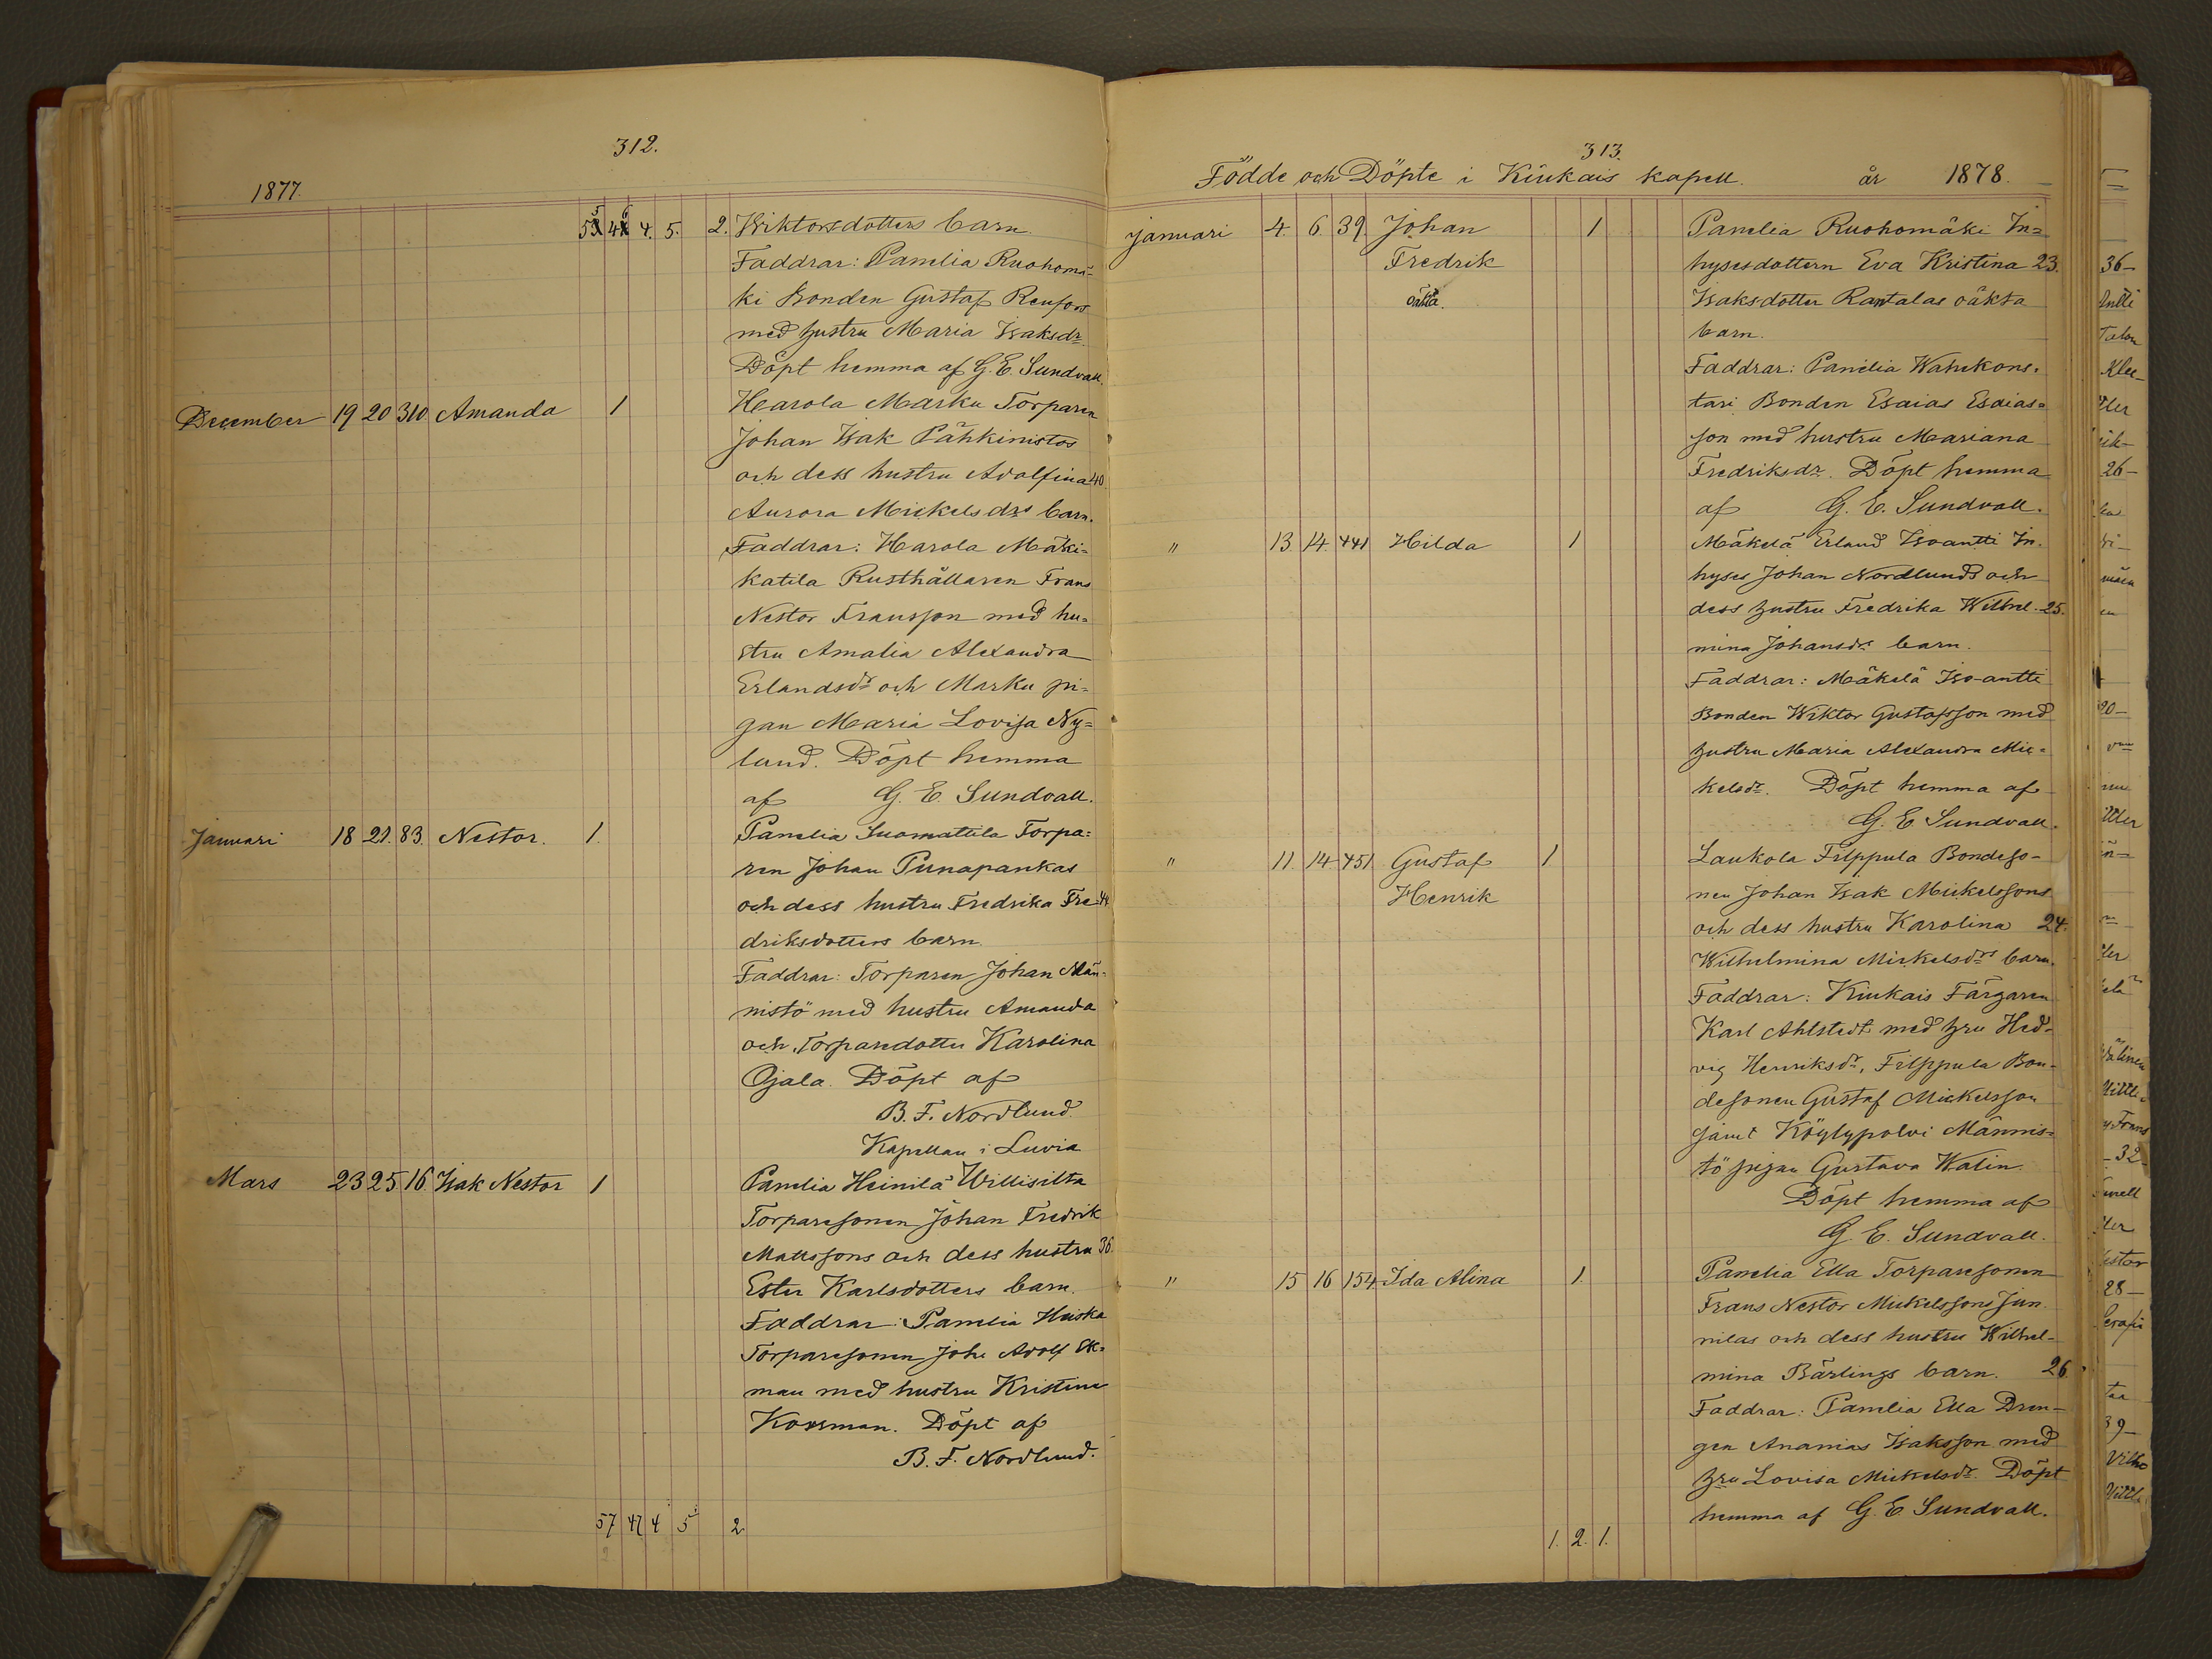 312.
1877.
55 46 4. 5. 2. Wiktorsdotters barn.
Faddrar: Panelia Ruohomä-
ki Bonden Gustaf Renfors
med hustru Maria Isaksdr.
Döpt hemma af G. E. Sundvall.
December 19 20 310 Amanda 1 Harola Marku Torparen
Johan Isak Pähkinistos
och dess hustru Adolfina 40
Aurora Mickelsdrs barn.
Faddrar: Harola Mäki-
katila Rusthållaren Frans
Nestor Fransson med hu-
stru Amalia Alexandra
Erlandsdr och Marku pi-
gan Maria Lovisa Ny-
lund. Döpt hemma
af G. E. Sundvall.
Januari 18 21. 83. Nestor. 1. Panelia Suomattila Torpa-
ren Johan Punapankas
och dess hustru Fredrika Fre- 44
driksdotters barn.
Faddrar: Torparen Johan Män-
nistö med hustru Amanda
och Torparedotter Karolina
Ojala. Döpt af
B. F. Nordlund.
Kapellan i Luvia
Mars 23 25 16. Isak Nestor 1 Panelia Heinilä Willisilta
Torparesonen Johan Fredrik
Mattssons och dess hustru 36.
Ester Karlsdotters barn.
Faddrar: Panelia Huiska
Torparesonen Joh. Adolf Ek-
man med hustru Kristina
Korsman. Döpt af
B. F. Nordlund.
57 47 4 5 2
313.
Födde och Döpte i Kiukais kapell. år 1878.
Januari 4. 6. 39. Johan 1 Panelia Ruohomäki In-
Fredrik hysesdottern Eva Kristina 23.
oäkta. Isaksdotter Rantalas oäkta
barn.
Faddrar: Panelia Wahekons-
tari Bonden Esaias Esaias-
son med hustru Mariana
Fredriksdr. Döpt hemma
af G. E. Sundvall.
" 13 14. 441 Hilda 1 Mäkelä Erland Isoantti In-
hyses Johan Nordlunds och
dess hustru Fredrika Wilhel- 25.
mina Johansdrs barn.
Faddrar: Mäkelä Iso-antti
Bonden Wiktor Gustafsson med
hustru Maria Alexandra Mic-
kelsdr. Döpt hemma af
G. E. Sundvall.
" 11. 14 451 Gustaf 1 Laukola Filppula Bondeso-
Henrik nen Johan Isak Mickelssons
och dess hustru Karolina 24.
Wilhelmina Mickelsdrs barn.
Faddrar: Kiukais Färgaren
Karl Ahlstedt med hru Hed-
vig Henriksdr, Filppula Bon-
desonen Gustaf Mickelsson
samt Köylypolvi Männis-
tö pigan Gustava Walin.
Döpt hemma af
G. E. Sundvall.
" 15 16 154. Ida Alina 1. Panelia Ella Torparesonen
Frans Nestor Mickelssons Jun-
nilas och dess hustru Wilhel-
mina Bärlings barn. 26.
Faddrar: Panelia Ella Dren-
gen Ananias Isaksson med
hru Lovisa Mickelsdr. Döpt
hemma af G. E. Sundvall.
1. 2. 1.